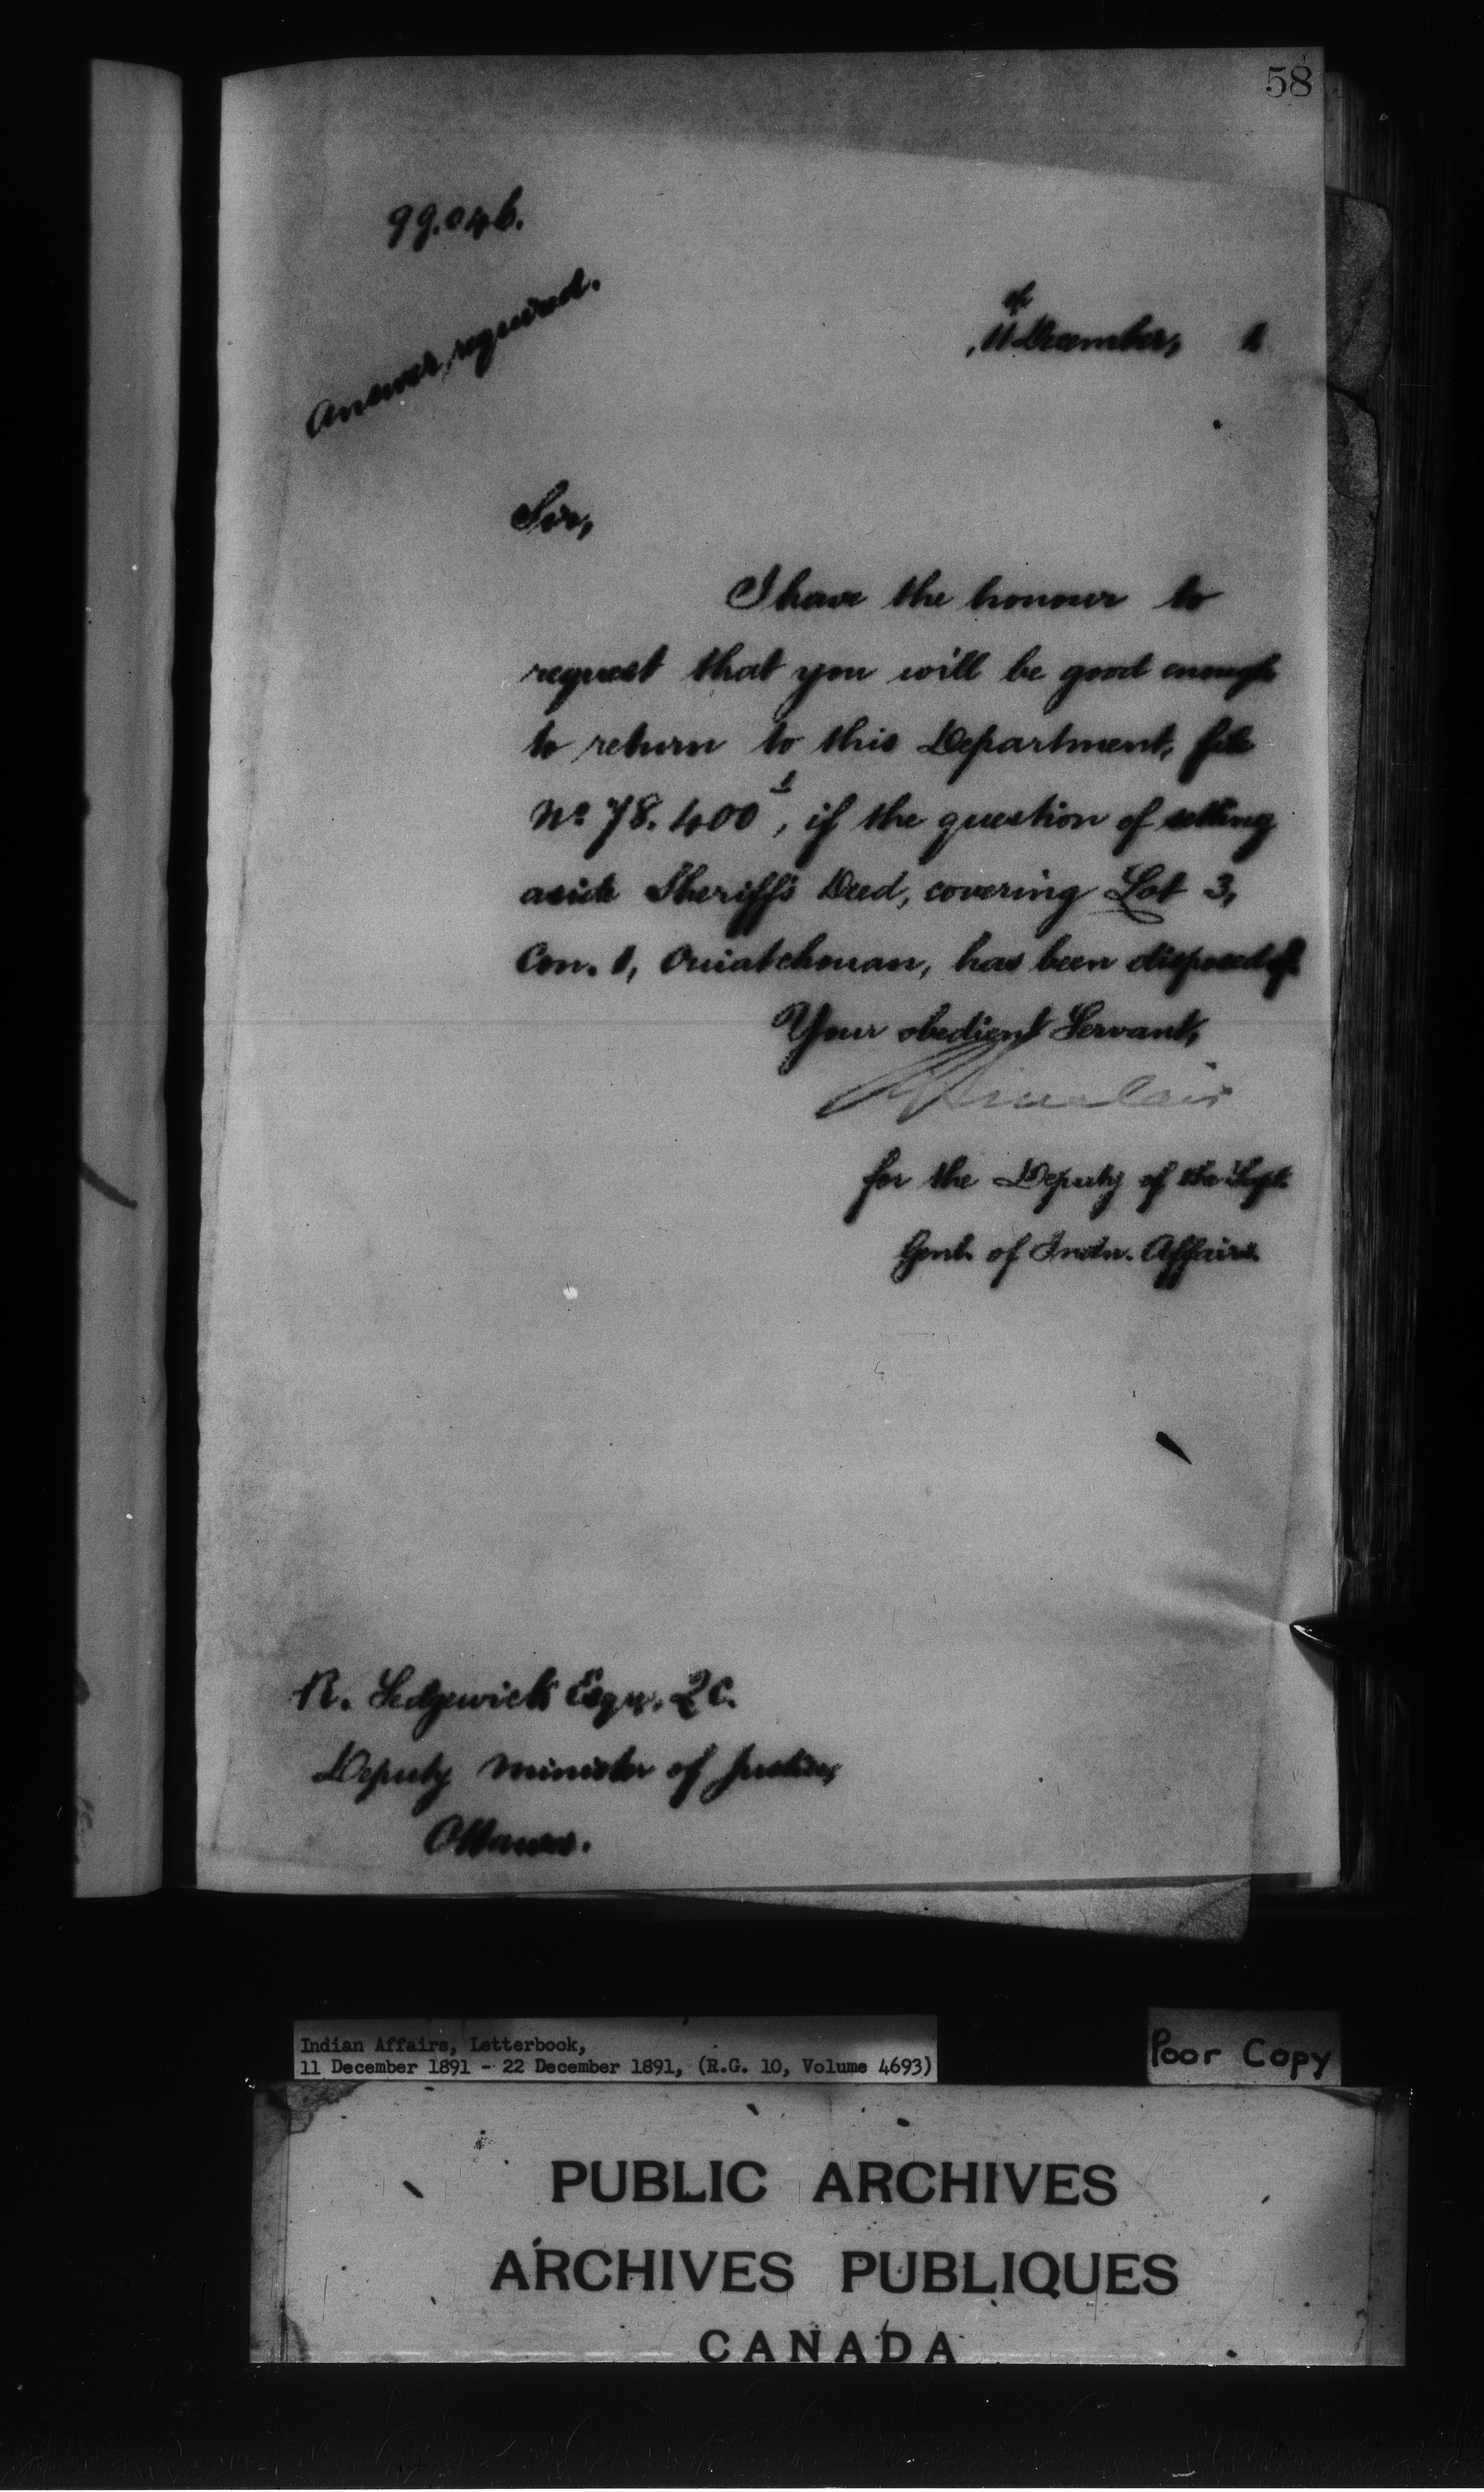 58
99.046.
Answer required.
11th December, 1
Sir,
I have the honour to
request that you will be good enough
to return to this Department, file
No. 78.400 1, if the question of setting
aside Sheriff's Deed, covering Lot 3,
Con. 1, Ouiatchouan, has been disposed of.
Your obedient Servant,
Sinclair
for the Deputy of the Supt.
Genl. of Indn. Affairs.
R. Sedgewick Esqr. Q.C.
Deputy Minister of Justice,
Ottawa.
Indian Affairs, Letterbook,
11 December 1891 - 22 December 1891, (R.G. 10, Volume 4693)
Poor Copy
PUBLIC ARCHIVES
ARCHIVES PUBLIQUES
CANADA